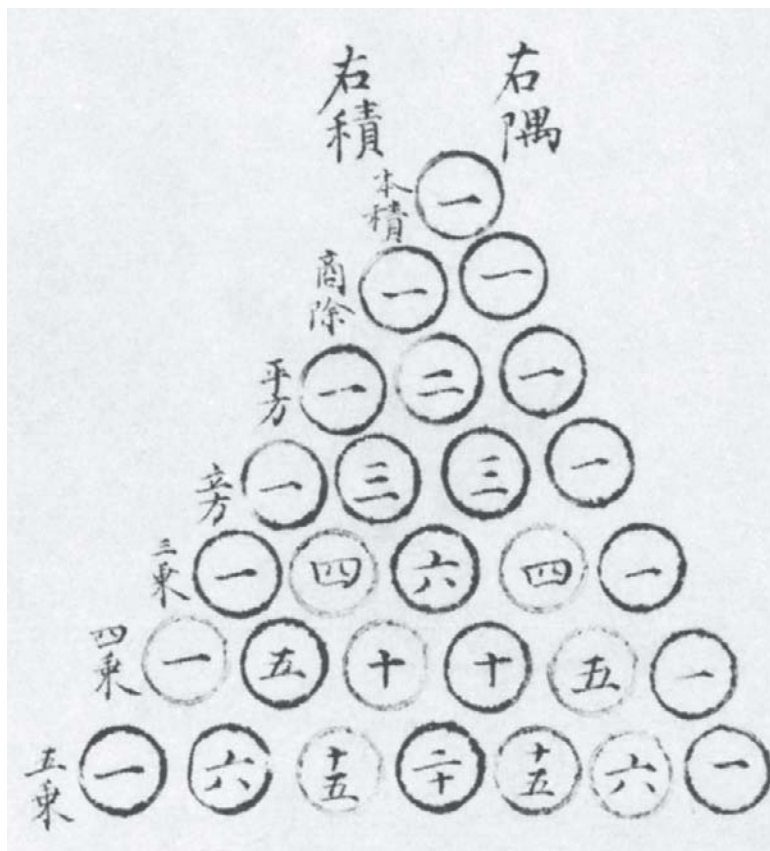 右積 右隅
本積 一
商除 一 一
平方 一 二 一
立方 一 三 三 一
三乗 一 四 六 四 一
四乗 一 五 十 十 五 一
五乗 一 六 十五 二十 十五 六 一